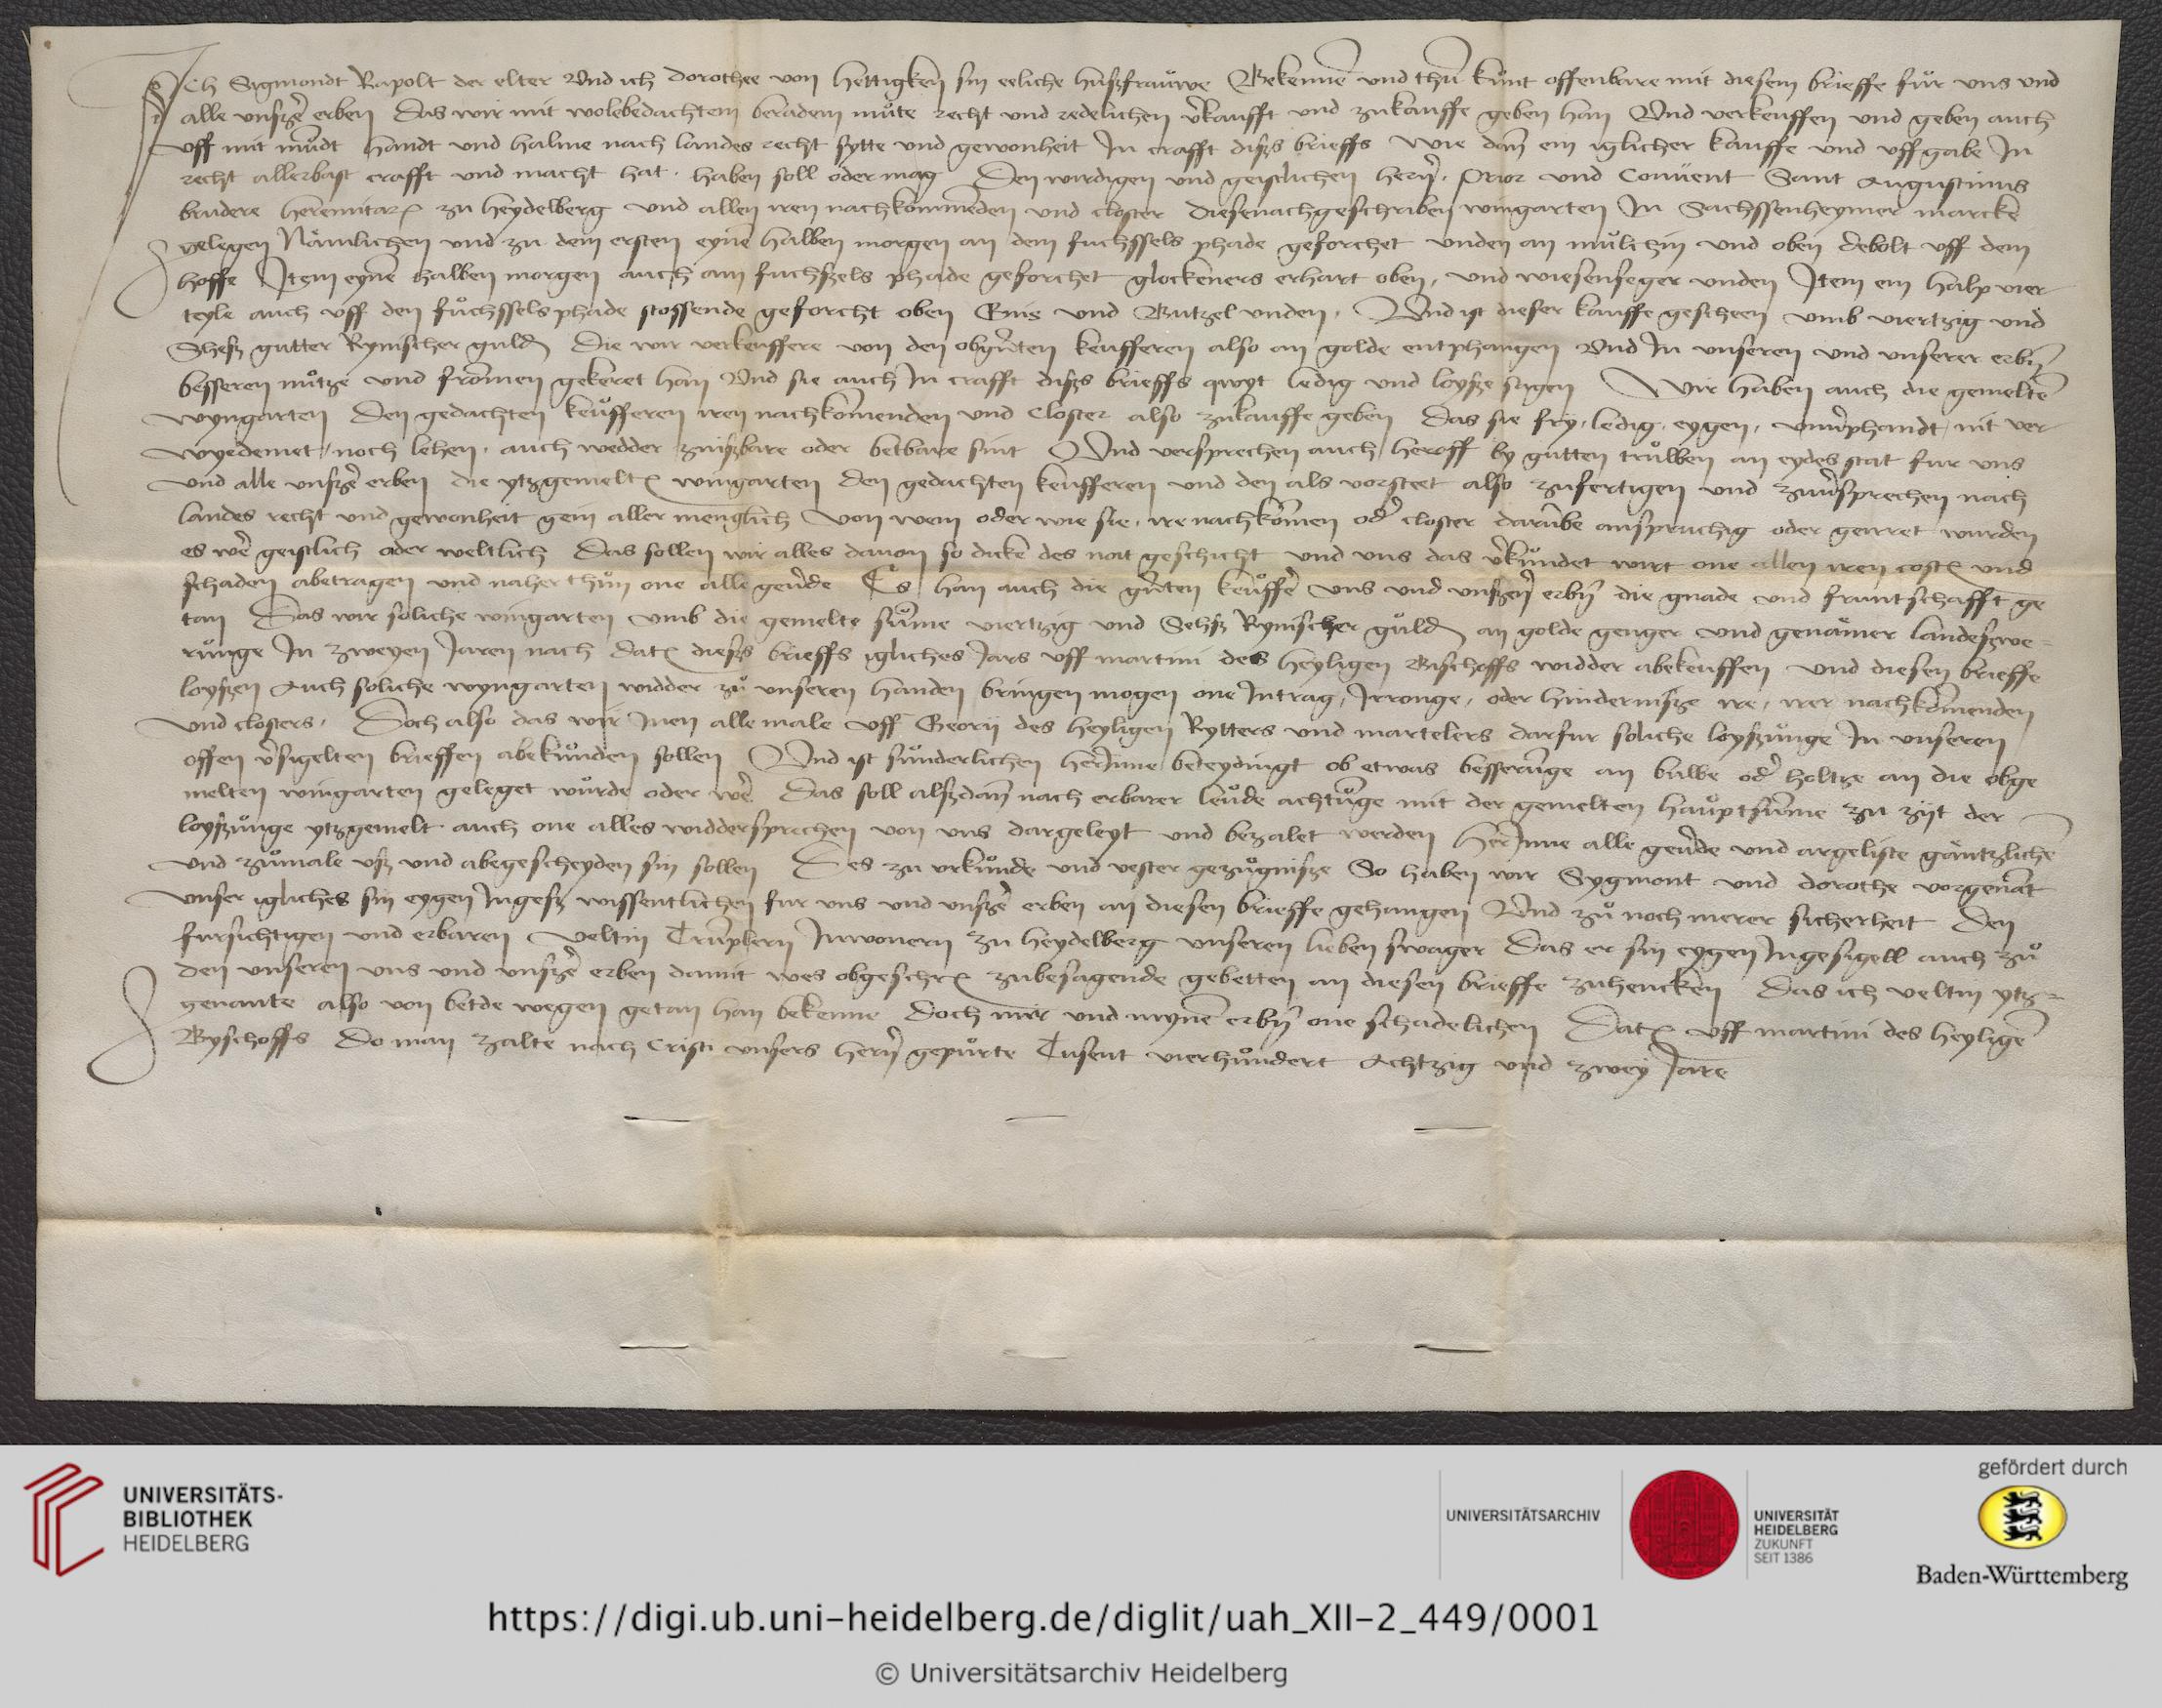 Ich Sigmondt Rapolt der elter Vnd ich dorothee von hettigken sin eeliche hußfrauwe Bekennē vnd thū kůnt offenbare mit diesem brieffe fůr vns vnd
alle vnßer̄ erben Das wir mit wolebedachtem beradem můte recht vnd redelichen v̄kaufft vnd zukauffe geben han Vnd verkeuffen vnd geben auch
vff mit mu̇dt handt vnd halme nach landes recht sytte vnd gewonheit In crafft dißs brieffs wie dan̄ ein iglicher kauffe vnd vffgabe In
recht allerbast crafft vnd macht hat · haben soll oder mag Den wirdigen vnd geistlichen her̄n · Prior vnd Conuent Sant Augustinus
brudere heremitar̄ zu heydelberg vnd allen iren nachkom̄enden vnd closter diesenachgeschriben wingarten In Sachssenheymer marcke
gelegen Nämlichen vnd zu dem ersten eynē halben morgen an dem fuchssels phade geforchet vnden an můlchin vnd oben debolt vff dem
hoffe Item eynē halben morgen auch am fuchßels phade geforchet glockeners erhart oben, vnd wiesenfeger vnden Item ein halp vier
teyle auch vff den fůchssels phade stossende geforcht oben Enis vnd Butzel vnden · Vnd ist dieser kauffe gescheen vmb viertzig vnd
Sheß gutter Rynischer guld̄ Die wir verkeuffere von den obḡnten keufferen also an golde entphangen Vnd In vnseren vnd vnserer erb̄n
besseren nůtze vnd from̄en gekeret han Vnd sie auch In crafft dißs brieffs qwyt ledig vnd loyße sagen Wir haben auch die gemeltē
wyngarten Den gedachten keůfferen iren nachkom̄enden vnd Closter also zukauffe geben Das sie fry, ledig, eygen, vnuerphandt, nit ver
wyedemet, noch lehen, auch wedder zinßbare oder betbare sint Vnd versprechen auch heroff by gutten trůwen an eydes stat fur vns
vnd alle vnßer̄ erben die ytzgemelt̄ wingarten Den gedachten keufferen vnd den als vorsteet also zufertigen vnd zuu̇sprechen nach
landes recht vnd gewonheit gein aller menglich von wem oder wie sie, ire nachkom̄en od̄ closter darūbe anspruchig oder geirret wurden
es wer̄ geistlich oder weltlich Das sollen wir alles dauon so dicke des not geschicht vnd vns das v̄kůndet wirt one allen iren cost̄ vnd
schaden abetragen vnd naher thůn one alle geu̇de Es han auch die ḡnten keůffer̄ vns vnd vnßer̄n erb̄n die gnade vnd fruntschafft ge
tan Das wir soliche wingarten vmb die gemelte sům̄e viertzig vnd Sehß Rynischer gůld̄ an golde genger vnd genämer landeßwe-
růnge In zweyen Jaren nach dat̄ dießs brieffs igliches Jars vff martini des heyligen Bischoffs widder abekeuffen vnd diesen brieffe
loyßen Auch soliche wyngarten widder zů vnseren handen bringen mogen one Intrag, Irronge, oder hinderniße ire, irer nachkom̄enden
vnd closters, Doch also das wir Inen alle male vff Georii des heyligen Rytters vnd martelers darfur soliche loyßůnge In vnseren
offen v̄sigelten brieffen abekůnden sollen Vnd ist sůnderlichen herInne beteydingt ob etwas besserūnge an buwe od̄ holtze an die obge
melten wingarten geleget wůrde oder wer̄ Das soll alßdan̄ nach erbarer leůde achtůnge mit der gemelten haůptsům̄e zu zijt der
loyßůnge ytzgemelt auch one alles widdersprechen von vns dargeleyt vnd bezalet werden HerInne alle geu̇de vnd argeliste gäntzlichē
vnd zůmale vß vnd abegescheyden sin sollen Des zu vrkůnde vnd vester gezůgniße So haben wir Sygmont vnd dorothe vorgenāt
vnser igliches sin eygen Ingeß wissentlichen fur vns vnd vnßer̄ erben an diesen brieffe gehangen Vnd zů noch merer sicherheit Den
fursichtigen vnd erbaren veltin Trumplern Inwonern zu heydelberg vnseren lieben swager Das er sin eygen Ingesigell auch zů
den vnseren vns vnd vnßer̄ erben damit wes obgeschr̄ zubesagende gebetten an diesen brieffe zuhencken Das ich veltin ytz-
genante also von betde wegen getan han bekenne Doch mir vnd mynē erb̄n one schadelichen Dat̄ vff martini des heyligē
Byschoffs Do man zalte nach Cristi vnsers her̄n gepůrte Tusent vierhůndert Achtzig vnd zwey Jare
UNIVERSITÄTS-
BIBLIOTHEK
HEIDELBERG
UNIVERSITÄTSARCHIV
UNIVERSITÄT
HEIDELBERG
ZUKUNFT
SEIT 1386
gefördert durch
Baden-Württemberg
https://digi.ub.uni-heidelberg.de/diglit/uah_XII-2_449/0001
© Universitätsarchiv Heidelberg